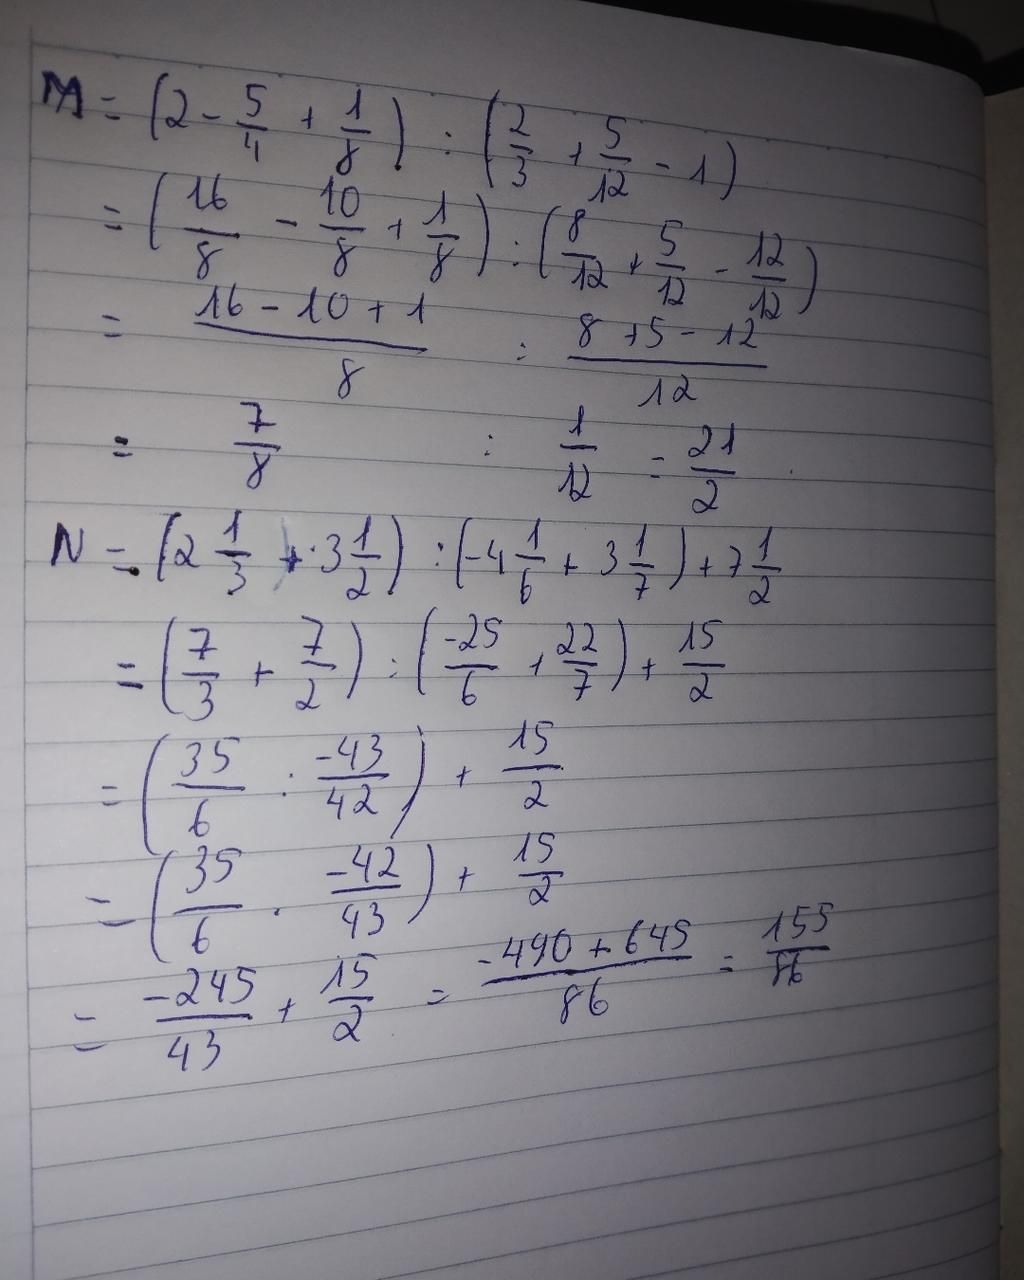 M = (2 - 5/4 + 1/8) : (2/3 + 5/12 - 1)
= (16/8 - 10/8 + 1/8) : (8/12 + 5/12 - 12/12)
= (16 - 10 + 1)/8 : (8 + 5 - 12)/12
= 7/8 : 1/12 = 21/2
N = (2 1/3 + 3 1/2) : (-4 1/6 + 3 1/7) + 7 1/2
= (7/3 + 7/2) : (-25/6 + 22/7) + 15/2
= (35/6 : -43/42) + 15/2
= (35/6 . -42/43) + 15/2
= -245/43 + 15/2 = (-490 + 645)/86 = 155/86